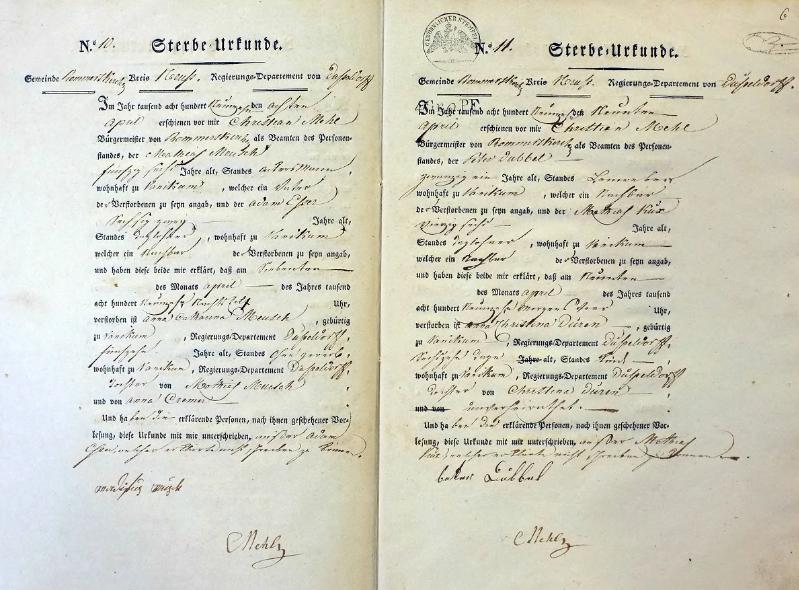 N.º 10. Sterbe-Urkunde.
Gemeinde Rommerskirch Kreis Neuss. Regierungs-Departement von Düsseldorff
Im Jahr tausend acht hundert den achten
april erschienen vor mir Christian Mehl
Bürgermeister von Rommerskirch als Beamten des Personen-
standes, der Mathias Meusch
fünfzig sechs Jahre alt, Standes ackersmann,
wohnhaft zu Vanikum, welcher ein Vater
der Verstorbenen zu seyn angab, und der adam Esser
Jahre alt,
Standes taglohner, wohnhaft zu Vanikum
welcher ein Nachbar der Verstorbenen zu seyn angab,
und haben diese beide mir erklärt, daß am siebenten
des Monats april des Jahres tausend
acht hundert Uhr,
verstorben ist anna Meusch, gebürtig
zu Vanikum, Regierungs-Departement Düsseldorff,
fünfzehn Jahre alt, Standes ohne gewerb,
wohnhaft zu Vanikum, Regierungs-Departement Düsseldorff
Tochter von Mathias Meusch
und von anna Cremer
Und haben die erklärende Personen, nach ihnen geschehener Vor-
lesung, diese Urkunde mit mir unterschrieben, ausser adam
Esser, welcher erklärte nicht schreiben zu können.
CMehl
6
N.º 11. Sterbe-Urkunde.
Gemeinde Rommerskirch Kreis Neuss. Regierungs-Departement von Düsseldorff.
Im Jahr tausend acht hundert den Neunten
April erschienen vor mir Christian Mehl
Bürgermeister von Rommerskirch als Beamten des Personen-
standes, der Peter Dubbel
zwanzig ein Jahre alt, Standes
wohnhaft zu Vanikum, welcher ein Nachbar
der Verstorbenen zu seyn angab, und der Mathias Küx
vierzig sechs Jahre alt,
Standes taglohner, wohnhaft zu Vanikum
welcher ein Nachbar der Verstorbenen zu seyn angab,
und haben diese beide mir erklärt, daß am Neunten
des Monats april des Jahres tausend
acht hundert morgens Uhr,
verstorben ist anna Christina Düren, gebürtig
zu Vanikum, Regierungs-Departement Düsseldorff,
sechszehn Tage Jahre alt, Standes Kind,
wohnhaft zu Vanikum, Regierungs-Departement Düsseldorff
Tochter von Christina Düren
und von unverheirathet.
Und haben die erklärende Personen, nach ihnen geschehener Vor-
lesung, diese Urkunde mit mir unterschrieben, ausser Mathias
Küx, welcher erklärte nicht schreiben zu können.
CMehl